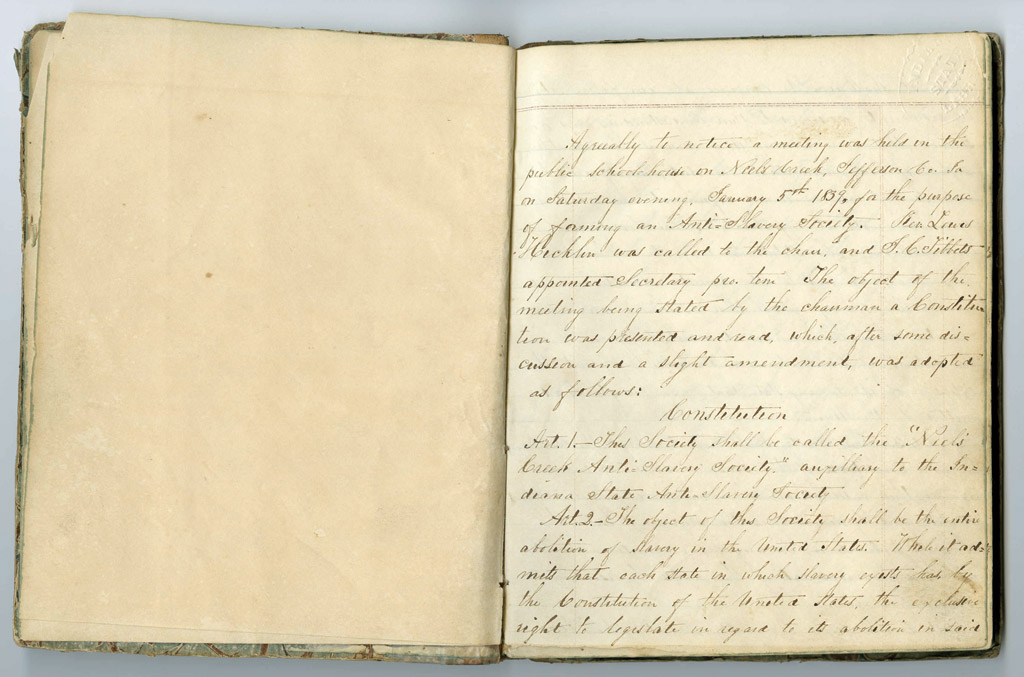 Agreeably to notice a meeting was held in the
public schoolhouse on Neels Creek, Jefferson Co. Ia
on Saturday evening, January 5th 1839, for the purpose
of forming an Anti-Slavery Society. Rev. Lewis
Hicklin was called to the chair, and J. C. Tibbets
appointed Secretary pro. tem. The object of the
meeting being stated by the chairman a Constitu
tion was presented and read, which, after some dis-
cussion and a slight amendment, was adopted
as follows:
Constitution
Art. 1.- This Society shall be called the "Neels
Creek Anti-Slavery Society." auxilliary to the In-
diana State Anti-Slavery Society
Art. 2.- The object of this Society shall be the entire
abolition of slavery in the United States. While it ad-
mits that each state in which slavery exists has, by
the Constitution of the United States, the exclusive
right to legislate in regard to its abolition in said